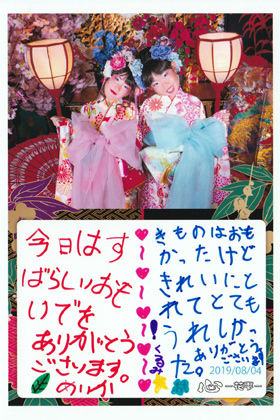 今日はす
ばらしいおも
いでを
ありがとう
ございます。
めいか
きものはおも
かったけど
きれいにと
れてとても
うれしかっ
た。
ありがとう
ございます
くるみ
2019/08/04